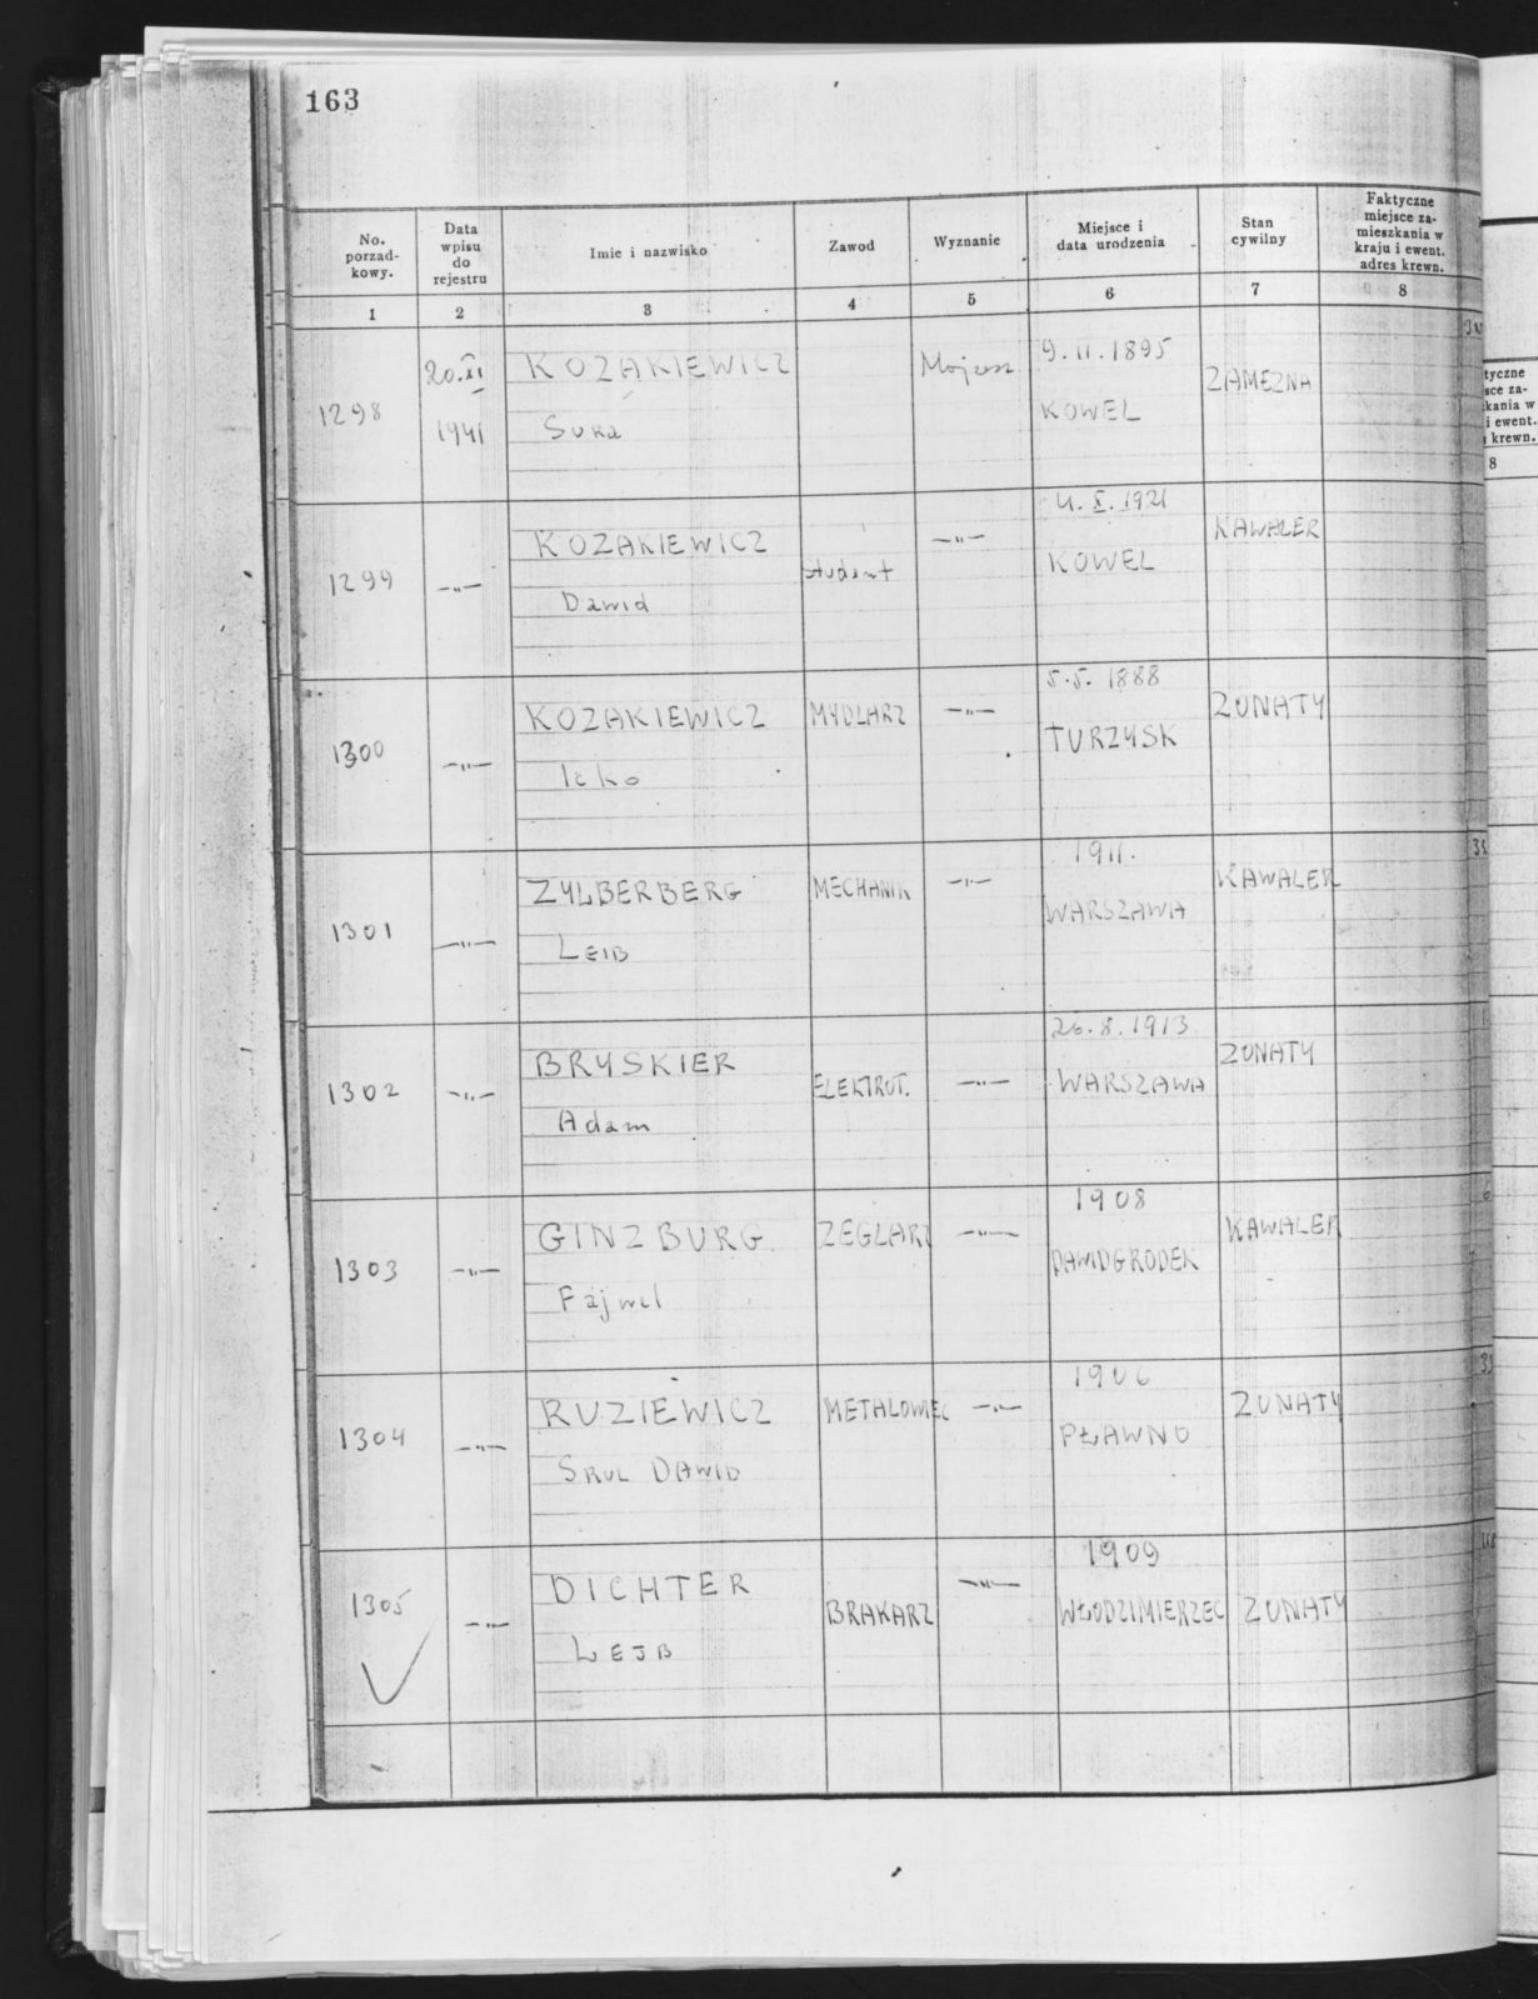 163
No. porzad- kowy.
Data wpisu do rejestru
Imie i nazwisko
Zawod
Wyznanie
Miejsce i data urodzenia
Stan cywilny
Faktyczne miejsce za- mieszkania w kraju i ewent. adres krewn.
1 2 3 4 5 6 7 8
1298 20.XI 1941 KOZAKIEWICZ Mojzesz 9.11.1895 KOWEL ZAMEZNA
1299 —"— KOZAKIEWICZ Dawid student —"— 4.X.1921 KOWEL KAWALER
1300 —"— KOZAKIEWICZ Icko MYDLARZ —"— 5.5.1888 TURZYSK ZONATY
1301 —"— ZYLBERBERG LEIB MECHANIK —"— 1911. WARSZAWA KAWALER
1302 —"— BRYSKIER Adam ELEKTROT. —"— 26.8.1913 WARSZAWA ZONATY
1303 —"— GINZBURG Fajwel ZEGLARZ —"— 1908 DAWIDGRODEK KAWALER
1304 —"— RUZIEWICZ SRUL DAWID METALOWIEC —"— 1906 PŁAWNO ZONATY
1305 —"— DICHTER LEJB BRAKARZ —"— 1909 WŁODZIMIERZEC ZONATY
tyczne
sce za-
kania w
i ewent.
krewn.
8